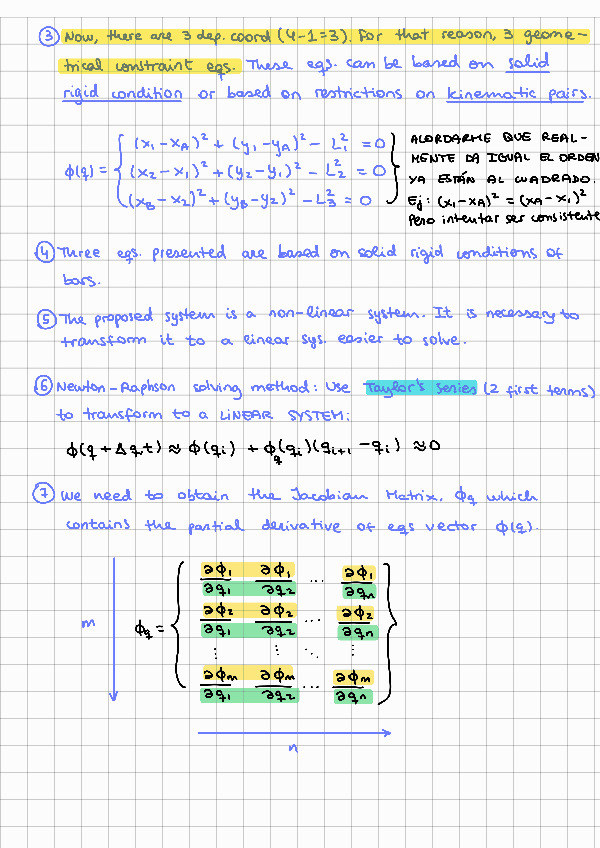 ③ Now, there are 3 dep. coord (4-1=3). For that reason, 3 geome-
trical constraint eqs. These eqs. can be based on solid
rigid condition or based on restrictions on kinematic pairs.
ϕ(q) = { (x₁-x_A)² + (y₁-y_A)² - L₁² = 0
(x₂-x₁)² + (y₂-y₁)² - L₂² = 0
(x_B-x₂)² + (y_B-y₂)² - L₃² = 0 }
ACORDARME QUE REAL-
MENTE DA IGUAL EL ORDEN
YA ESTÁN AL CUADRADO.
Ej: (x₁-x_A)² = (x_A-x₁)²
Pero intentar ser consistente
④ Three eqs. presented are based on solid rigid conditions of
bars.
⑤ The proposed system is a non-linear system. It is necessary to
transform it to a linear sys. easier to solve.
⑥ Newton-Raphson solving method: Use Taylor's Series (2 first terms)
to transform to a LINEAR SYSTEM:
ϕ(q + Δqt) ≈ ϕ(qᵢ) + ϕ_q(qᵢ)(qᵢ₊₁ - qᵢ) ≈ 0
⑦ We need to obtain the Jacobian Matrix, ϕq which
contains the partial derivative of eqs vector ϕ(q).
m
ϕq = { ∂ϕ₁/∂q₁ ∂ϕ₁/∂q₂ ... ∂ϕ₁/∂qₙ
∂ϕ₂/∂q₁ ∂ϕ₂/∂q₂ ... ∂ϕ₂/∂qₙ
⋮ ⋮ ⋱ ⋮
∂ϕm/∂q₁ ∂ϕm/∂q₂ ... ∂ϕm/∂qₙ }
n